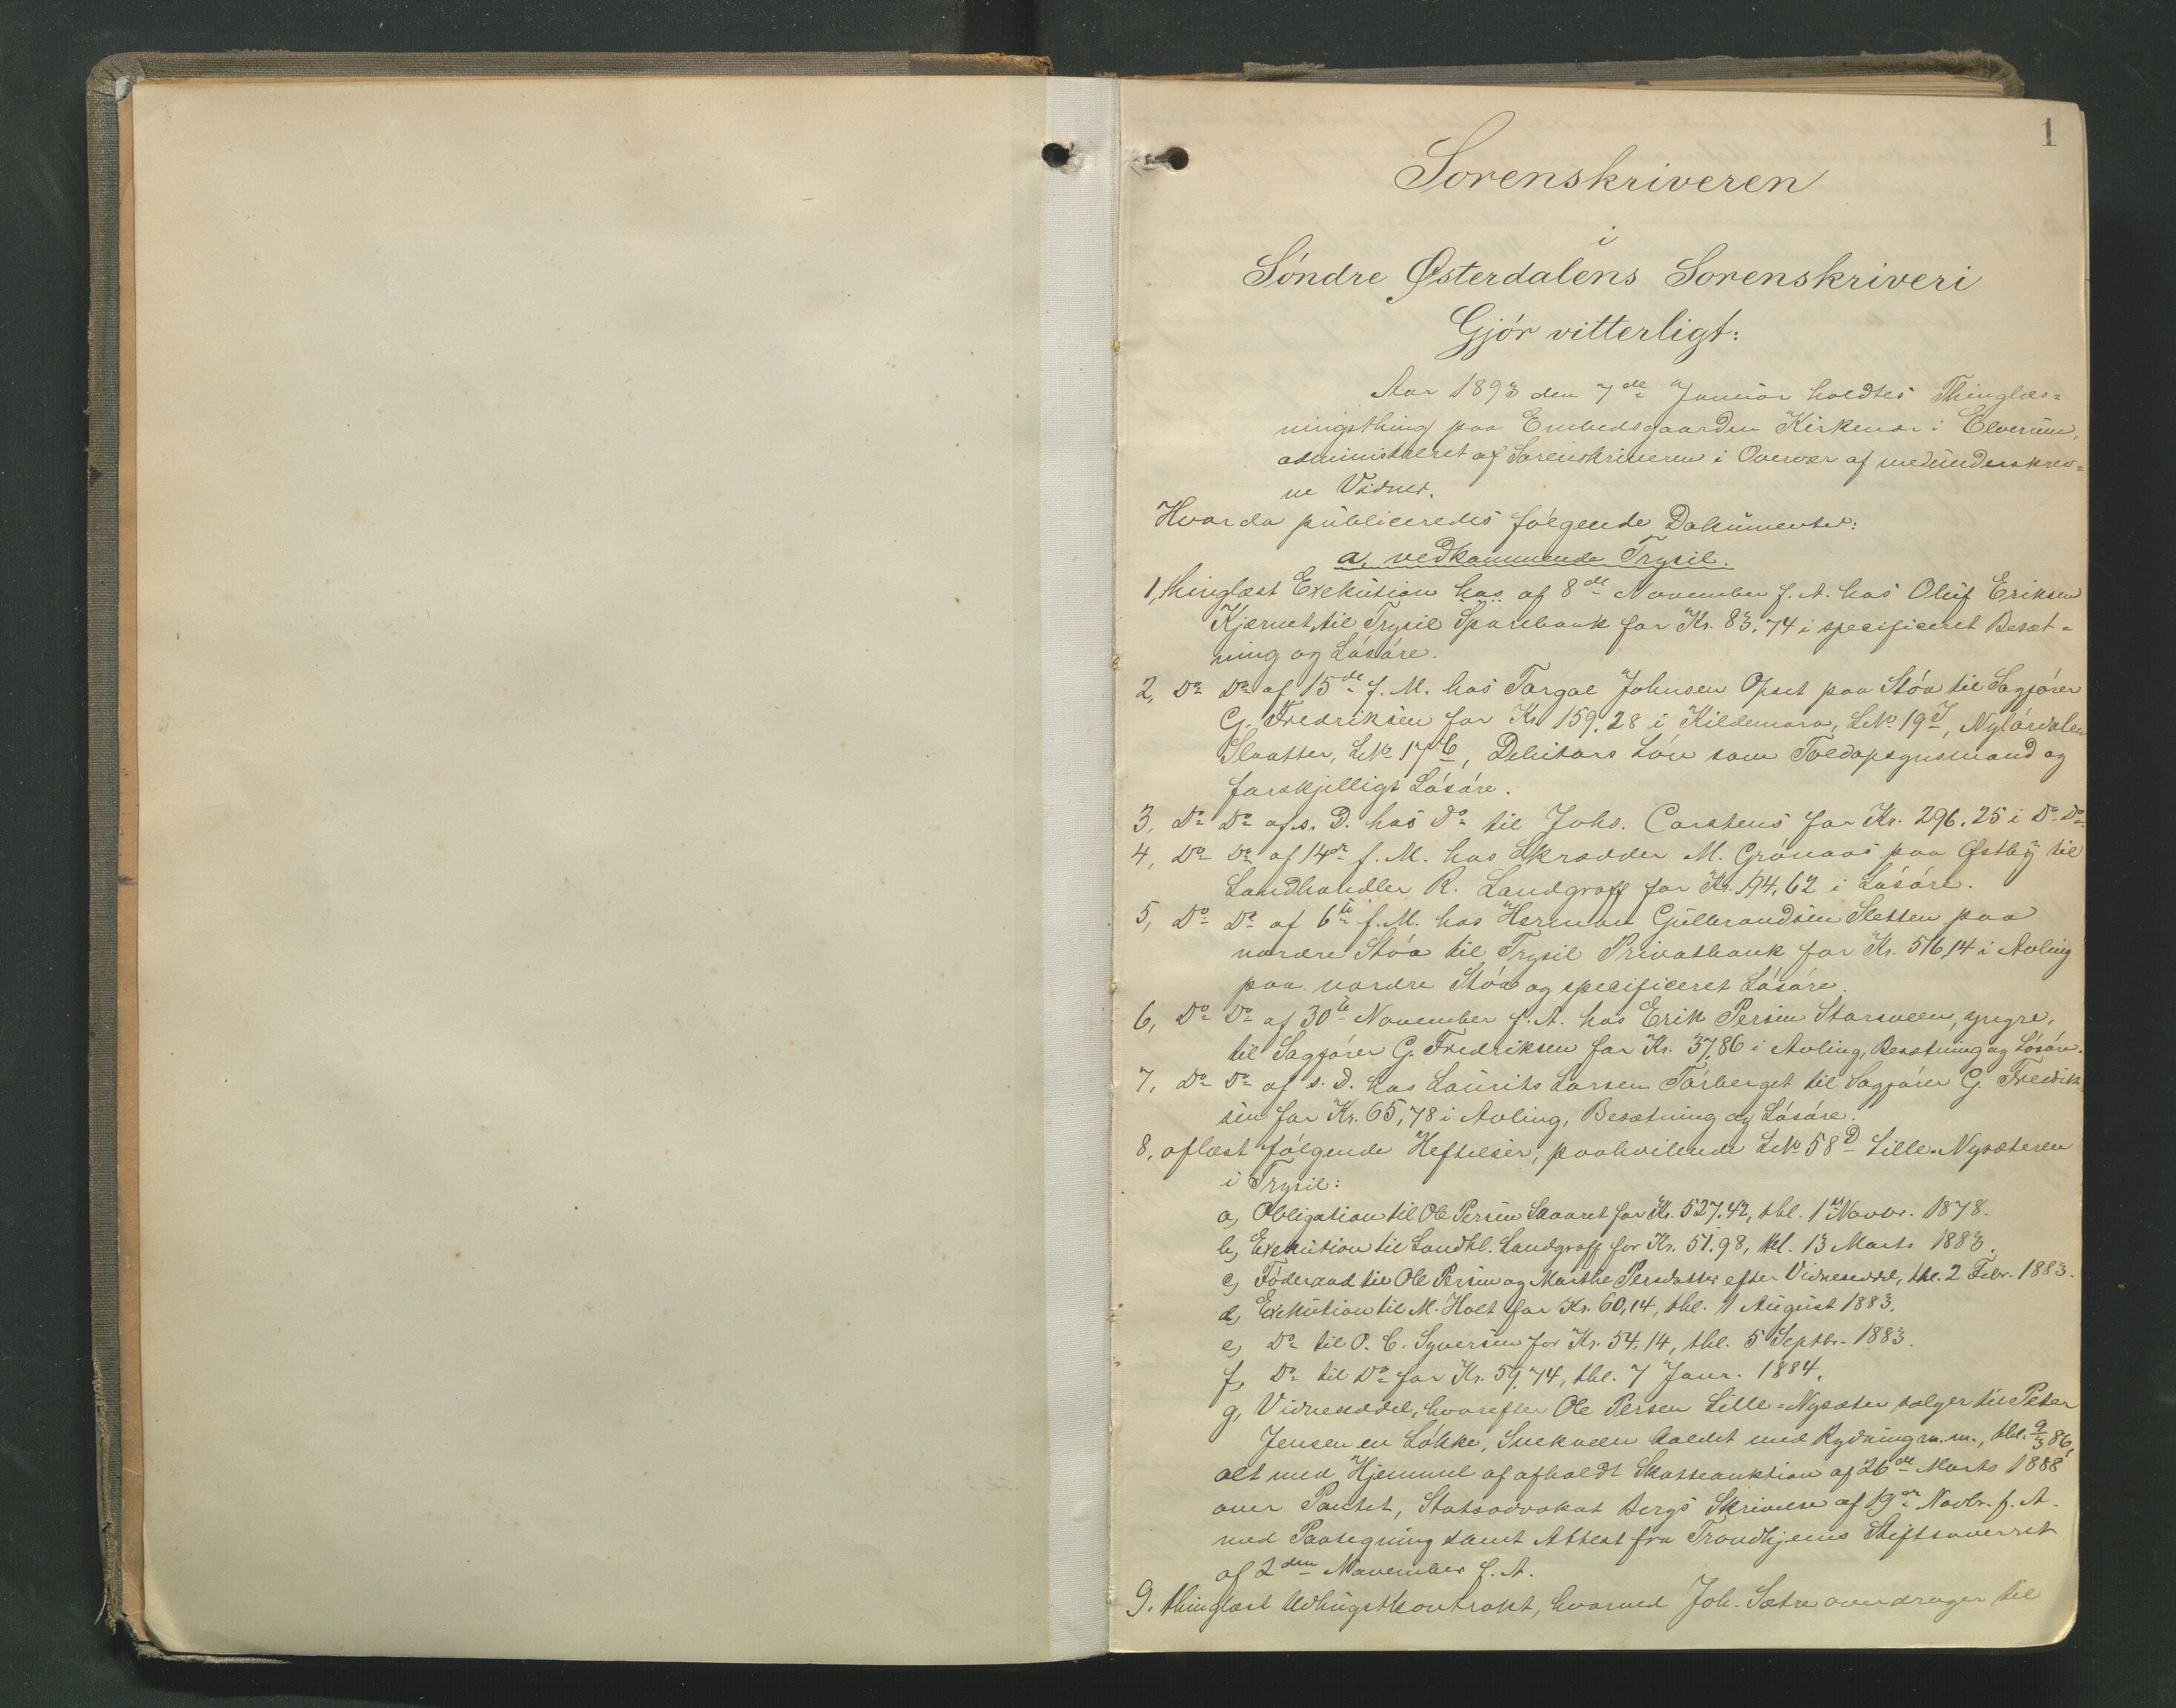 1
Sorenskriveren
i
Söndre Østerdalens Sorenskriveri
Gjör vitterligt:
Aar 1893 den 7de Januar holdtes Thinglæs=
ningsthing paa Embedsgaarden Kirkenær i Elverum,
administreret af Sorenskriveren i Overvær af medunderskrev=
ne Vidner.
Hvor da publiceredes følgende Dokumenter:
a, vedkommende Trysil.
1, thinglæst Exekution hos af 8de November f. A. hos Oluf Eriksen
Kjærnet, til Trysil Sparebank for Kr. 83,74 i specificeret Besæt=
ning og Løsøre.
2, Do Do af 15de f. M. hos Torgal Johnsen Opset paa Støa til Sagfører
G. Fredriksen for Kr. 159.28 i Kildemora, LNo 19d, Nylørdalen
Slaatter, LNo 17b, Debitors Løn som Toldopsynsmand og
forskjelligt Løsøre.
3, Do Do af s. D. hos Do til Johs. Carstens for Kr. 296.25 i Do Do
4, Do Do af 14de f. M. hos Skrædder M. Grønaas paa Østby til
Landhandler R. Landgraff for Kr. 194,62 i Løsøre.
5, Do Do af 6te f. M. hos Herman Gulbrandsen Sletten paa
nordre Støa til Trysil Privatbank for Kr. 516,14 i Avling
paa nordre Støa og specificeret Løsøre.
6, Do Do af 30te November f. A. hos Erik Persen Storsveen, yngre,
til Sagfører G. Fredriksen for Kr. 37,86 i Avling, Besætning og Løsøre.
7, Do Do af s. D. hos Laurits Larsen Tørberget til Sagfører G. Fredrik
sen for Kr. 65,78 i Avling, Besætning og Løsøre.
8, aflæst følgende Heftelser, paahvilende LNo 58D Lille-Nysæteren
i Trysil:
a, Obligation til Ole Persen Skaaret for Kr. 527.42, thl. 1ste Novbr. 1878.
b, Exekution til Landhl. Landgraff for Kr. 51.98, thl. 13 Marts 1883.
c, Føderaad til Ole Persen og Marthe Persdatter efter Vidneseddel, thl. 2 Febr. 1883.
d, Exekution til M. Holt for Kr. 60,14, thl. 1 August 1883.
e, Do til P. C. Syversen for Kr. 54.14, thl. 5 Septbr. 1883.
f, Do til Do for Kr. 59,74, thl. 7 Janr. 1884.
g, Vidneseddel, hvorefter Ole Persen Lille=Nysæter sælger til Peter
Jensen en Løkke, Snekveen kaldet med Rydning m.m., thl. 9/3 86,
alt med Hjemmel af afholdt Skatteauktion af 26de Marts 1888
over Pantet, Statsadvokat Bergs Skrivelse af 19de Novbr. f. A.
med Paategning samt Attest fra Trondhjems Stiftsoverret
af 2den November f. A.
9. thinglæst Udhugstkontrakt, hvorved Joh. Sætre overdrager til